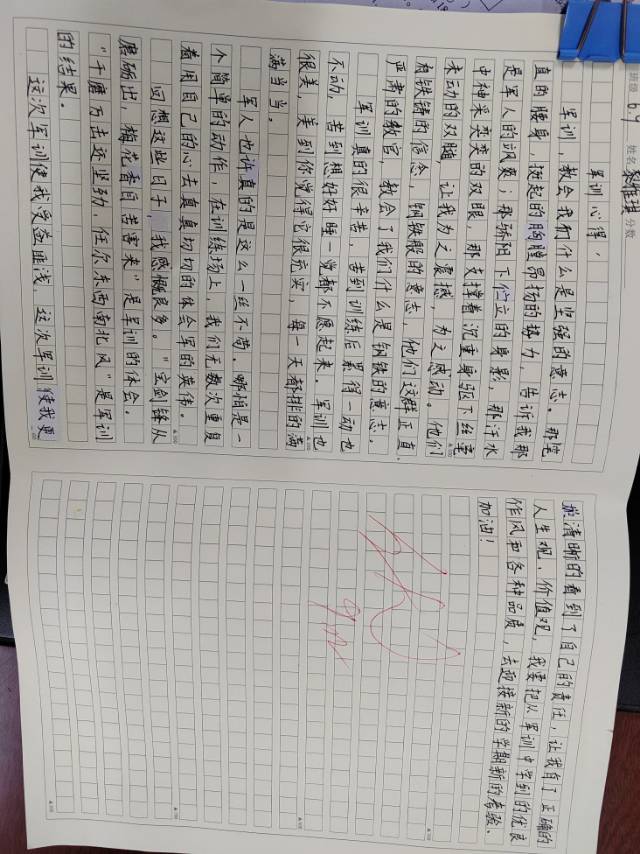 班级 69 姓名 分数
军训心得
军训，教会我们什么是坚强的意志。那笔
直的腰身，挺起的胸膛昂扬的势力，告诉我那
是军人的飒爽；那骄阳下伫立的身影，那汗水
中神采奕奕的双眼，那支撑着沉重身躯下丝毫
未动的双腿，让我为之震撼，为之感动。他们
有铁铸的信念，钢铁般的意志，他们这群正直、
严肃的教官，教会了我们什么是钢铁的意志。
军训真的很辛苦，苦到训练后累得一动也
不动，苦到想好好睡一觉都不愿起来。军训也
很美，美到你觉得它很充实，每一天都排的满
满当当。
军人也许真的是这么一丝不苟，哪怕是一
个简单的动作，在训练场上，我们无数次重复
着用自己的心去真真切切的体会军的英伟。
回想这些日子，我感慨良多。“宝剑锋从
磨砺出，梅花香自苦寒来”是军训的体会。
“千磨万击还坚劲，任尔东西南北风”是军训
的结果。
这次军训使我受益匪浅，这次军训使我更
清晰的看到了自己的责任，让我有了正确的
人生观、价值观，我要把从军训中学到的优良
作风和各种品质，去迎接新的学期新的考验、
加油！